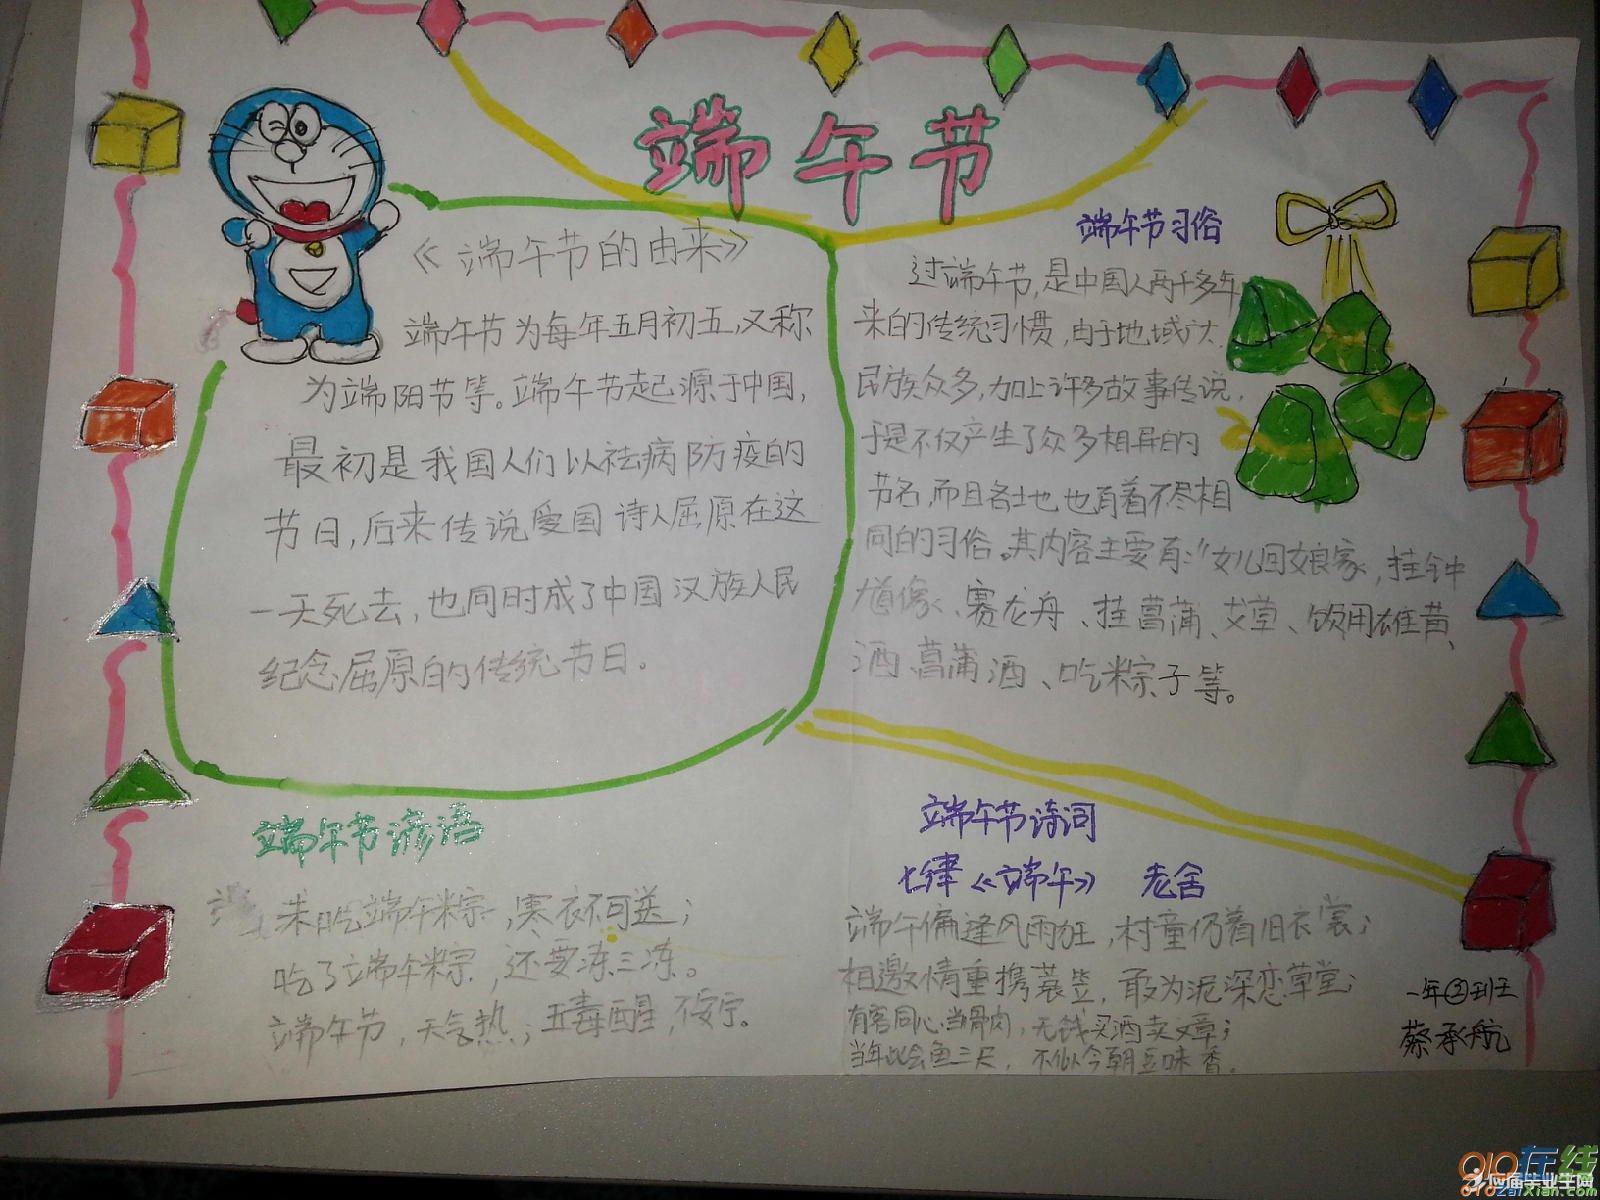 端午节
《端午节的由来》
端午节为每年五月初五,又称
为端阳节等。端午节起源于中国,
最初是我国人们以祛病防疫的
节日,后来传说爱国诗人屈原在这
一天死去,也同时成了中国汉族人民
纪念屈原的传统节日.
端午节习俗
过端午节,是中国人两千多年
来的传统习惯,由于地域广大.
民族众多,加上许多故事传说.
于是不仅产生了众多相异的
节名,而且各地也有着不尽相
同的习俗。其内容主要有:"女儿回娘家,挂钟
馗像、赛龙舟、挂菖蒲、艾草、饮用雄黄、
酒、菖蒲酒、吃粽子等。
端午节谚语
未吃端午粽,寒衣不可送;
吃了端午粽,还要冻三冻。
端午节,天气热;五毒醒,不安宁。
端午节诗词
七律《端午》 老舍
端午偏逢风雨狂,村童仍着旧衣裳;
相邀情重携蓑笠,敢为泥深恋草堂;
有客同心当骨肉,无钱买酒卖文章;
当年此会鱼三尺,不似今朝豆味香.
一年③班
蔡承航
010在线
应届毕业生网
010zaixian.com